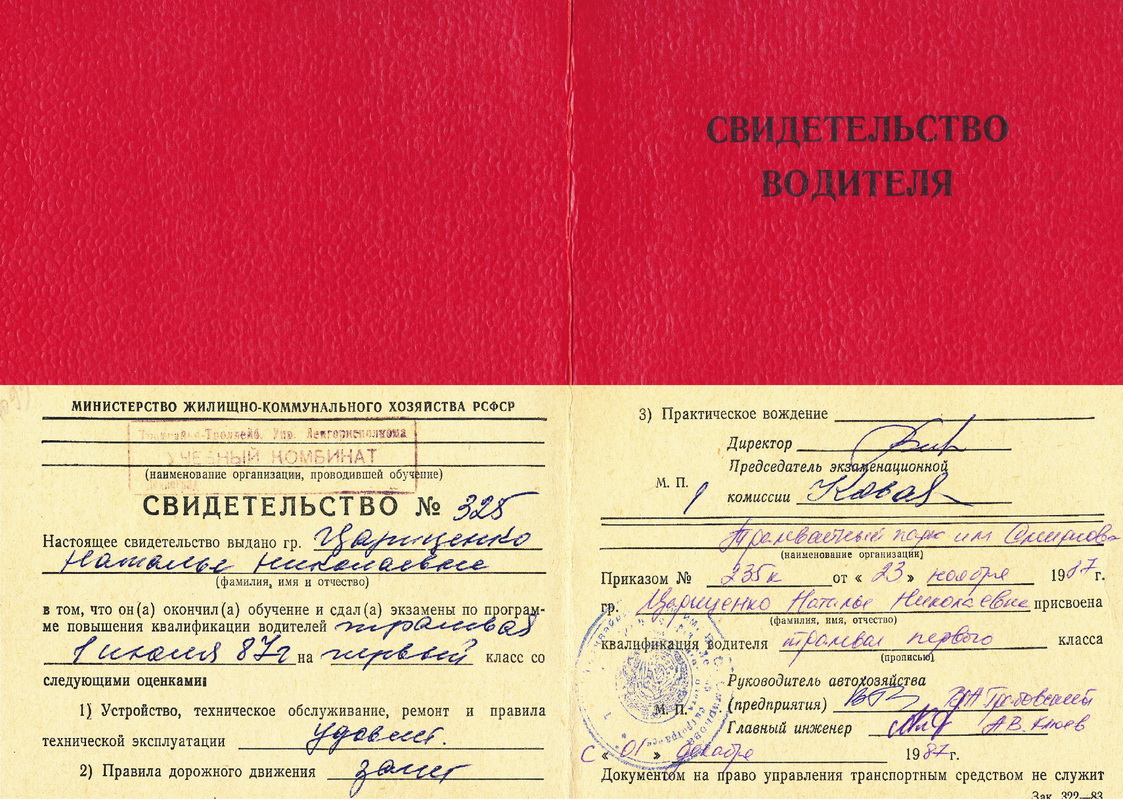 СВИДЕТЕЛЬСТВО
ВОДИТЕЛЯ
МИНИСТЕРСТВО ЖИЛИЩНО-КОММУНАЛЬНОГО ХОЗЯЙСТВА РСФСР
Упр. Ленгорисполкома
УЧЕБНЫЙ КОМБИНАТ
(наименование организации, проводившей обучение)
СВИДЕТЕЛЬСТВО № 325
Настоящее свидетельство выдано гр. Царищенко
Наталье Николаевне
(фамилия, имя и отчество)
в том, что он(а) окончил(а) обучение и сдал(а) экзамены по програм-
ме повышения квалификации водителей трамвая
1 июля 87г на первый класс со
следующими оценками:
1) Устройство, техническое обслуживание, ремонт и правила
технической эксплуатации Удовлет.
2) Правила дорожного движения зачет
3) Практическое вождение
Директор
Председатель экзаменационной
М. П.
комиссии
Трамвайный парк им Смирнова
(наименование организации)
Приказом № 235к от « 23 » ноября 1987 г.
гр. Царищенко Наталье Николаевне присвоена
(фамилия, имя, отчество)
квалификация водителя трамвая первого класса
(прописью)
Руководитель автохозяйства
М. П.
(предприятия)
Главный инженер А.В. Клюев
с « 01 » декабря 1987 г.
Документом на право управления транспортным средством не служит
Зак. 322—83